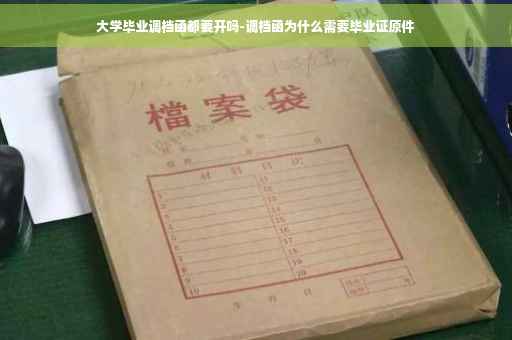 大学毕业调档函都要开吗-调档函为什么需要毕业证原件
檔案袋
材料目次
1
2
3
4
5
6
7
8
9
10
11
12
13
14
15
16
17
18
19
20
年 月 日